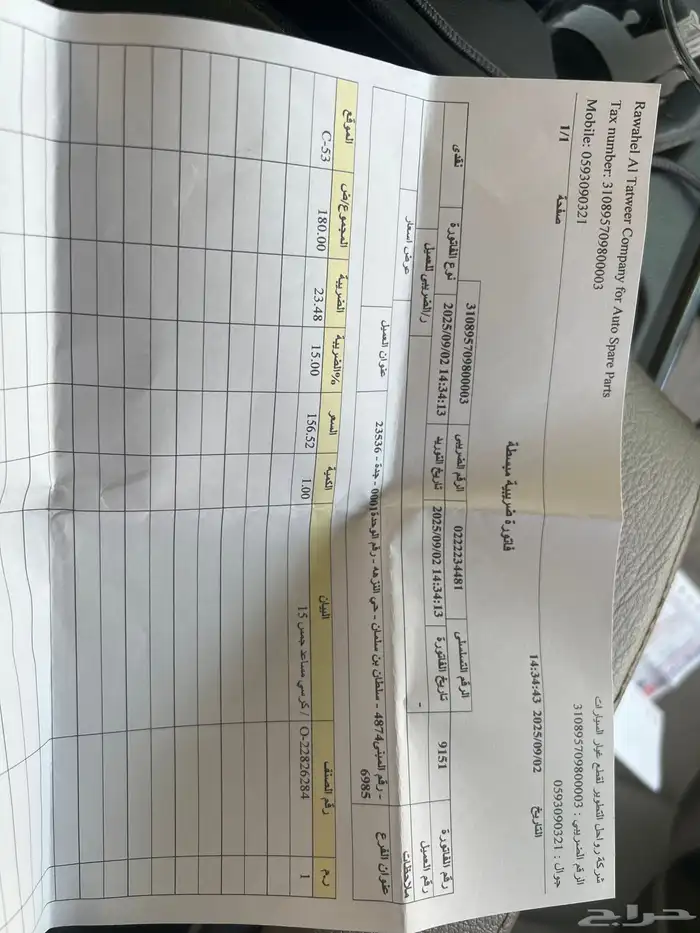 Rawahel Al Tatweer Company for Auto Spare Parts
Tax number: 310895709800003
Mobile: 0593090321
شركة رواحل التطوير لقطع غيار السيارات
الرقم الضريبي : 310895709800003
جوال : 0593090321
التاريخ 2025/09/02 14:34:43
صفحة 1/1
فاتورة ضريبية مبسطة
رقم الفاتورة 9151 الرقم التسلسلي 0222234481 الرقم الضريبي 310895709800003
تاريخ الفاتورة 2025/09/02 14:34:13 تاريخ التوريد 2025/09/02 14:34:13 نوع الفاتورة نقدى
رقم العميل - ر/الضريبى للعميل
ملاحظات عرض اسعار
عنوان الفرع 6985 - رقم المبنى4874 - سلطان بن سلمان - حي النزهه - رقم الوحدة0001 - جدة - 23536 عنوان العميل
ر.م رقم الصنف البيان الكمية السعر %الضريبة الضريبة المجموع/ض الموقع
1 O-22826284 / كرسي مساعد جمس 15 1.00 156.52 15.00 23.48 180.00 C-53
حراج